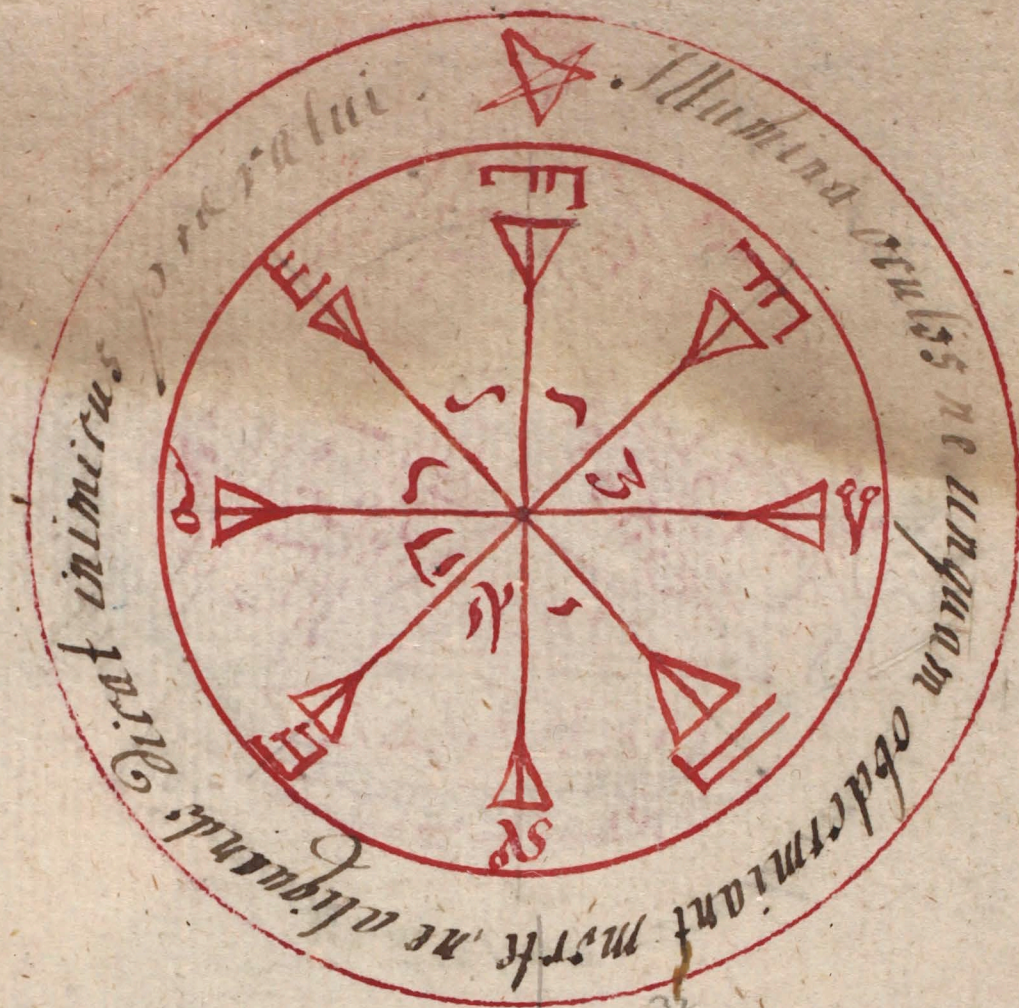 Illumina oculos ne unquam obdormiant morte, ne aliquando Dicat inimicus praevalui.